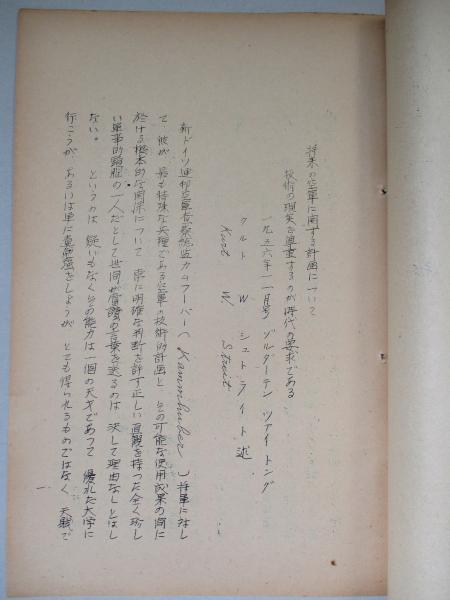 将来の空軍に関する計画について
技術の現実を尊重するのが時代の要求である
一九五六年十一月号 ゾルダーテン ツァイトング
クルト W シュトライト 述
Kurt W. Streit
新ドイツ連邦空軍査察総監カムフーバー(Kammhuber)将軍に対し
て 彼が 最も特殊な兵理である空軍の技術的計画と その可能な使用成果の間に
於ける根本的な関係について 常に明確な判断を許す正しい直観を持った全く珍し
い軍事的頭脳の一人だとして世間が賞讃の言葉を送るのは 決して理由なしとはし
ない。 というのは 疑いもなくその能力は一個の天才であって 優れた大学に
行こうが あるいは単に勤勉をしようが とても得られるものではなく 天賦で
一